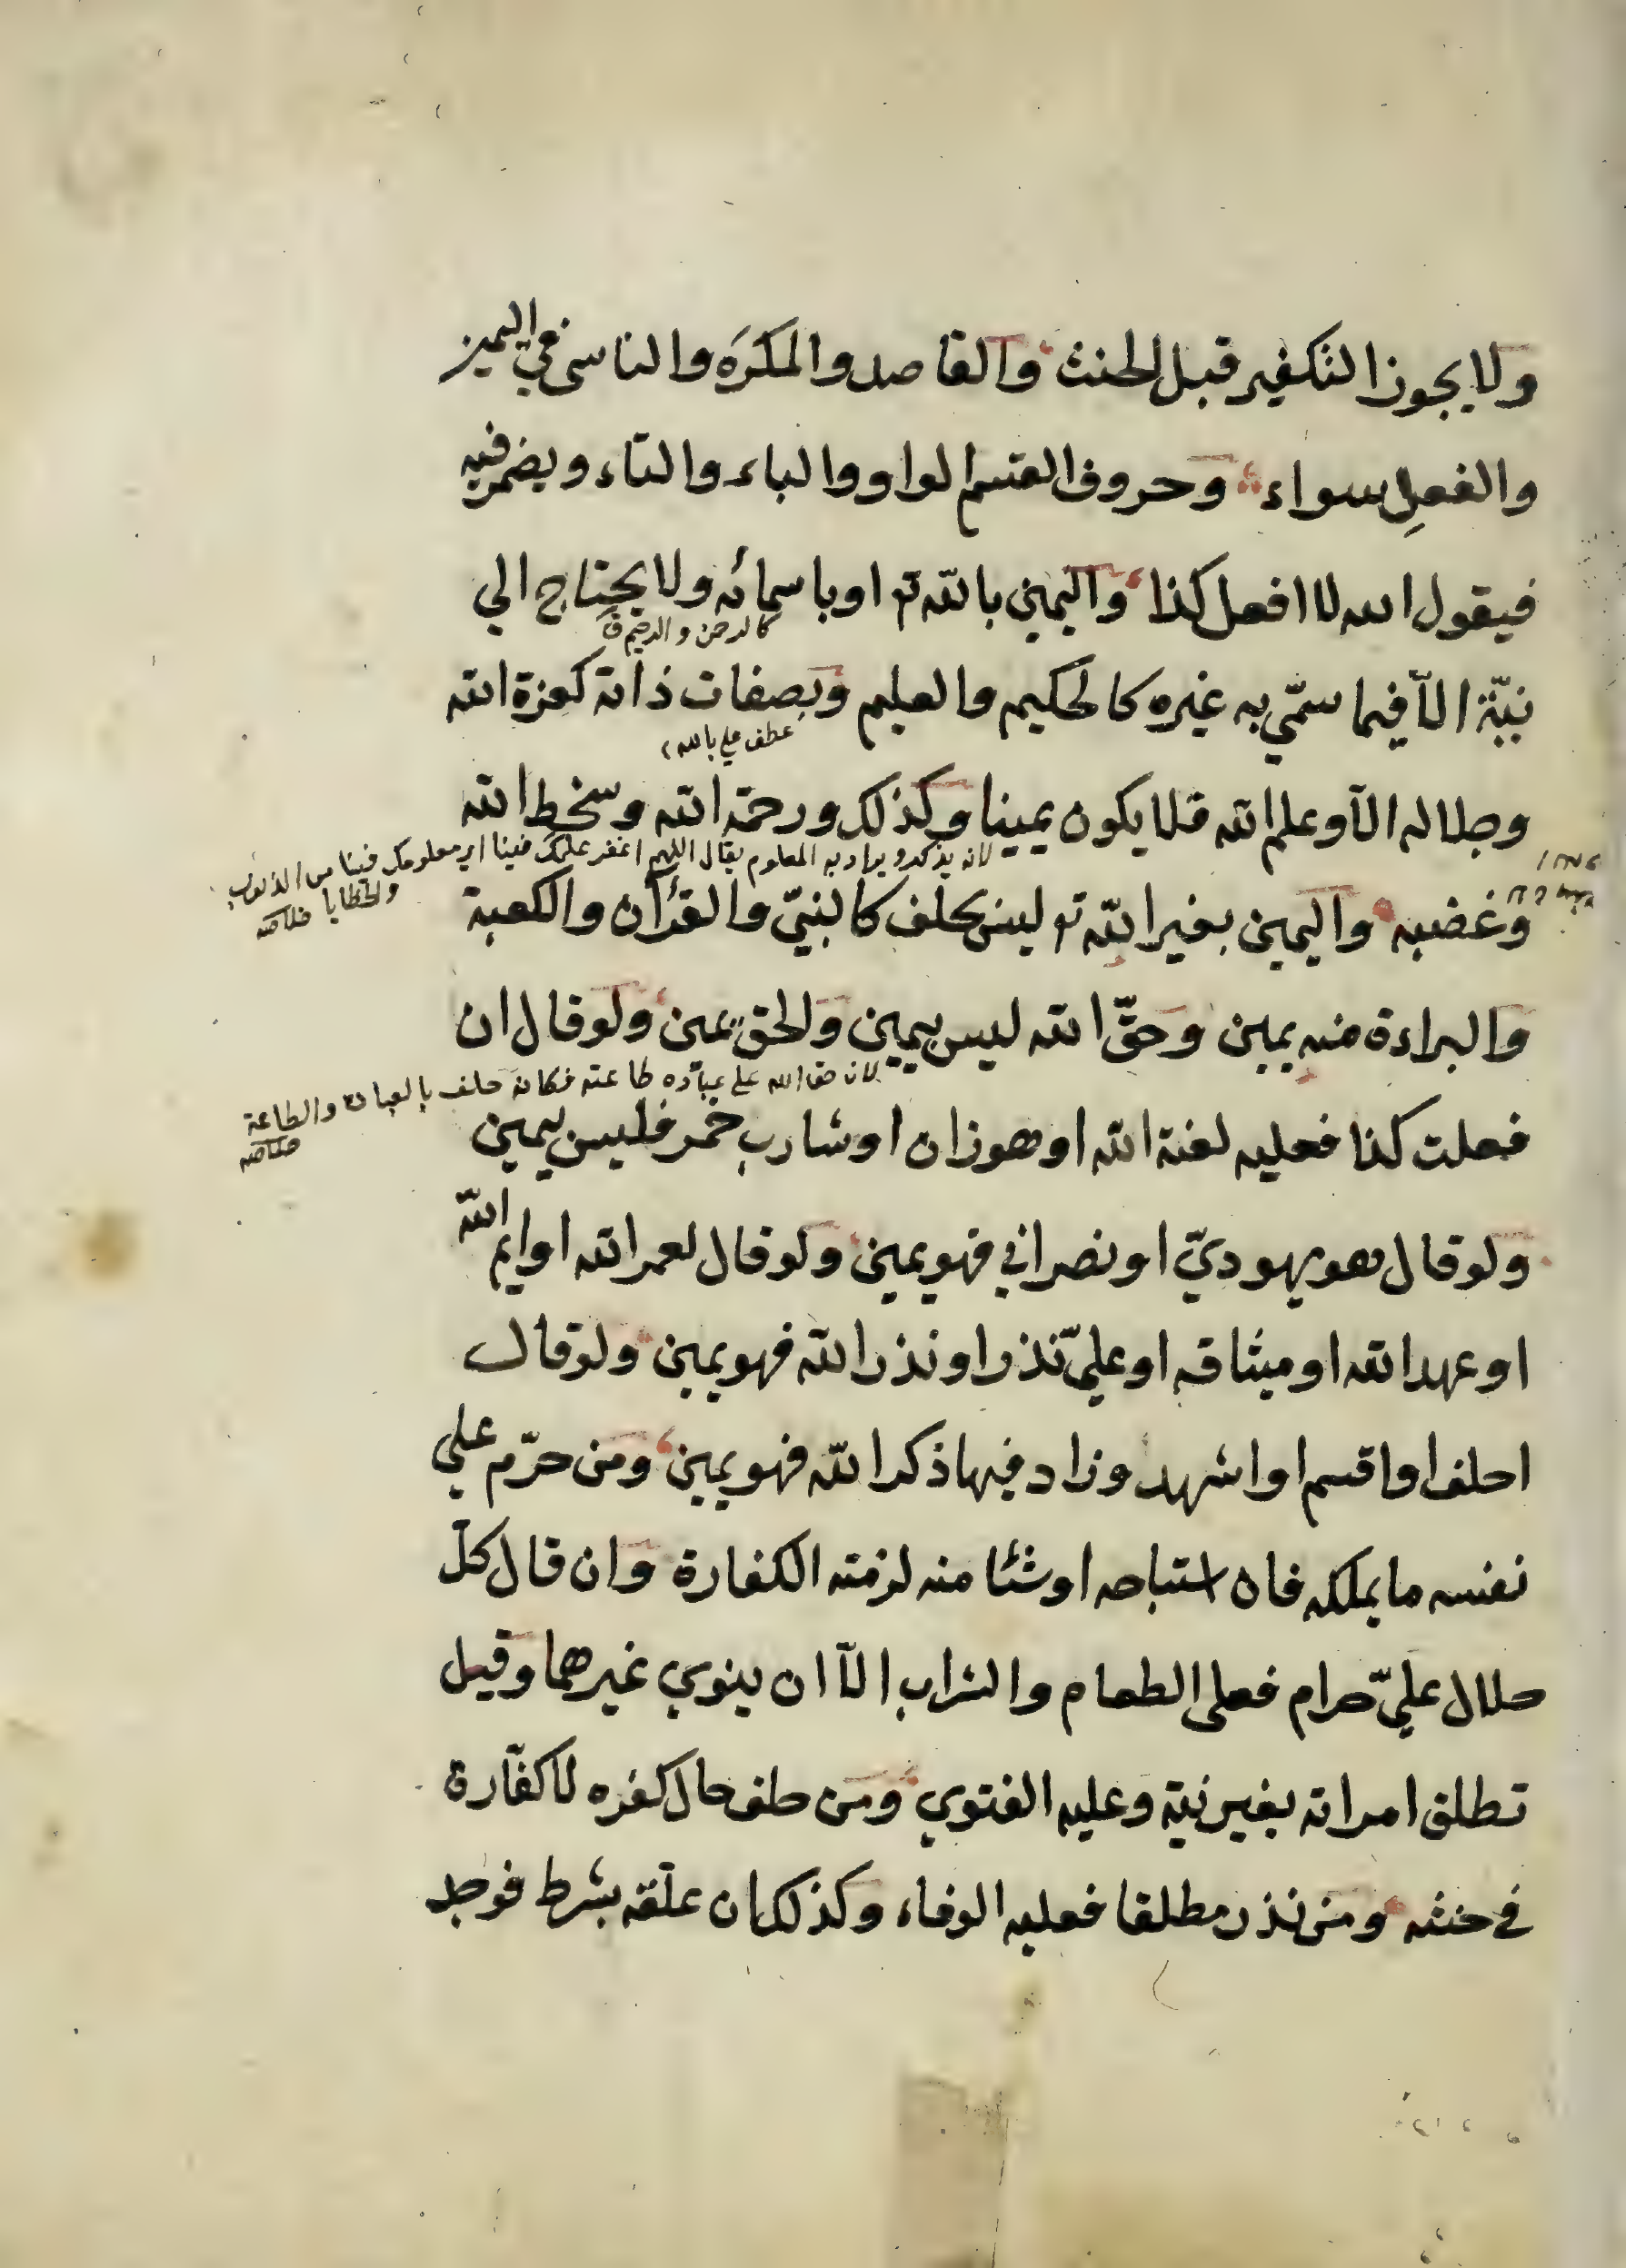 ولا يجوز التكفير قبل الحنث والقاصد والمكرَه والناسى في اليمين
والفعلِ سواء وحروف القسم الواو والباء والتاء ويضمر فيه
فيقول الله لا افعل كذا واليمين بالله تع او باسمائه ولا يحتاج الي
كالرحمن والرحيم ف
نيّة الّا فيما سمّي به غيره كالحكيم والعليم وبصفات ذاته كعزة الله
عطف علي بالله
وجلاله الّا وعلم الله فلا يكون يمينا وكذلك ورحمة الله وسخط الله
لانه يذكر ويراد به المعلوم يقال اللهم اغفر علمك فينا اي معلومك فينا من الذنوب
والخطايا خلاصه
وغضبه واليمين بغير الله تع ليس بحلف كالنبيّ والقرآن والكعبة
والبراءة منه يمين وحقّ الله ليس بيمين والحق يمين ولو قال ان
لان حق الله علي عباده طاعته فكانه حلف بالعبادة والطاعة
خلاصه
فعلت كذا فعليه لعنة الله او هو زان او شارب خمر فليس بيمين
ولو قال هو يهوديّ او نصراني فهو يمين ولو قال لعمر الله او ايم الله
او عهد الله او ميثاقه او عليّ نذر او نذر الله فهو يمين ولو قال
احلف او اقسم او اشهد وزاد فيها ذكر الله فهو يمين ومن حرّم علي
نفسه ما يملكه فان استباحه او شئا منه لزمته الكفارة وان قال كلّ
حلال عليّ حرام فعلى الطعام والشراب الّا ان ينوي غيرهما وقيل
تطلق امراته بغير نية وعليه الفتوي ومن حلف حال كفره لا كفّارة
في حنثه ومن نذر مطلقا فعليه الوفاء وكذلك ان علّقه بشرط فوجد